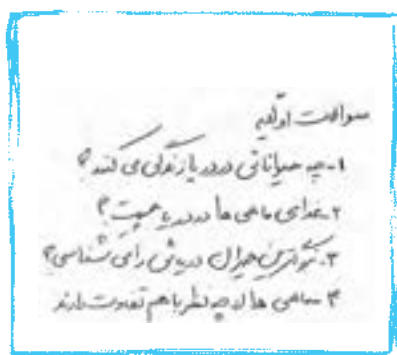 سوالات اولیه
۱- چه حیواناتی در دریا زندگی می کنند؟
۲- غذای ماهی ها در دریا چیست؟
۳- بزرگترین حیوان دریایی را می شناسی؟
۴- ماهی ها از چه نظر با هم تفاوت دارند